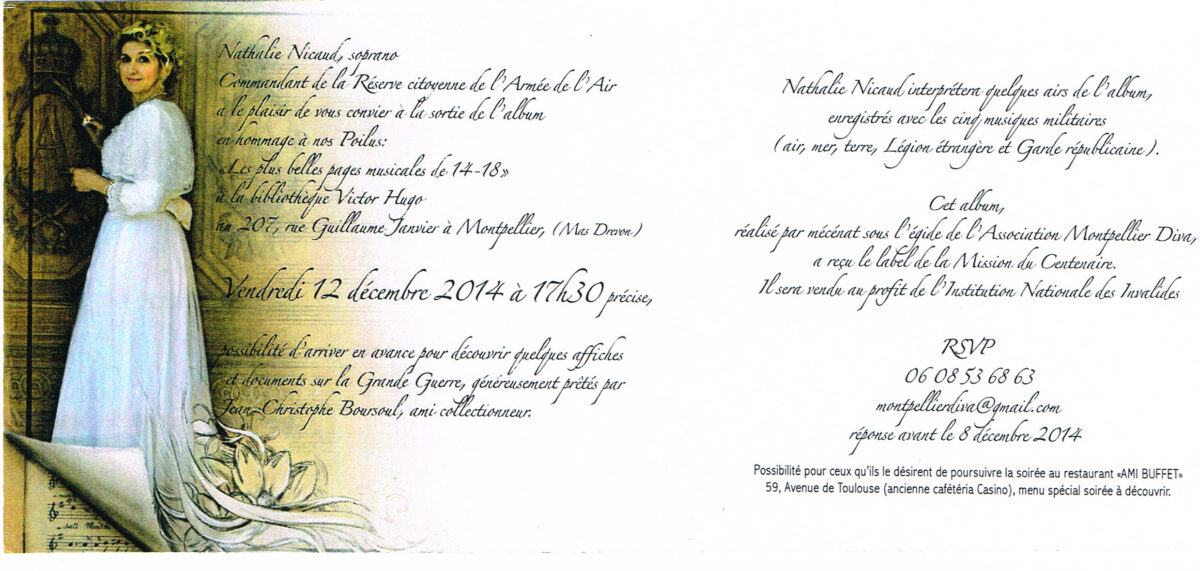 Nathalie Nicaud, soprano
Commandant de la Réserve citoyenne de l'Armée de l'Air
à le plaisir de vous convier à la sortie de l'album
en hommage à nos Poilus:
«Les plus belles pages musicales de 14-18»
à la bibliothèque Victor Hugo
au 207, rue Guillaume Janvier à Montpellier, (Mas Drevon)
Vendredi 12 décembre 2014 à 17h30 précise,
possibilité d'arriver en avance pour découvrir quelques affiches
et documents sur la Grande Guerre, généreusement prêtés par
Jean-Christophe Boursoul, ami collectionneur.
Nathalie Nicaud interprétera quelques airs de l'album,
enregistrés avec les cinq musiques militaires
(air, mer, terre, Légion étrangère et Garde républicaine).
Cet album,
réalisé par mécénat sous l'égide de l'Association Montpellier Diva,
a reçu le label de la Mission du Centenaire.
Il sera vendu au profit de l'Institution Nationale des Invalides
RSVP
06 08 53 68 63
montpellierdiva@gmail.com
réponse avant le 8 décembre 2014
Possibilité pour ceux qu'ils le désirent de poursuivre la soirée au restaurant «AMI BUFFET»
59, Avenue de Toulouse (ancienne cafétéria Casino), menu spécial soirée à découvrir.